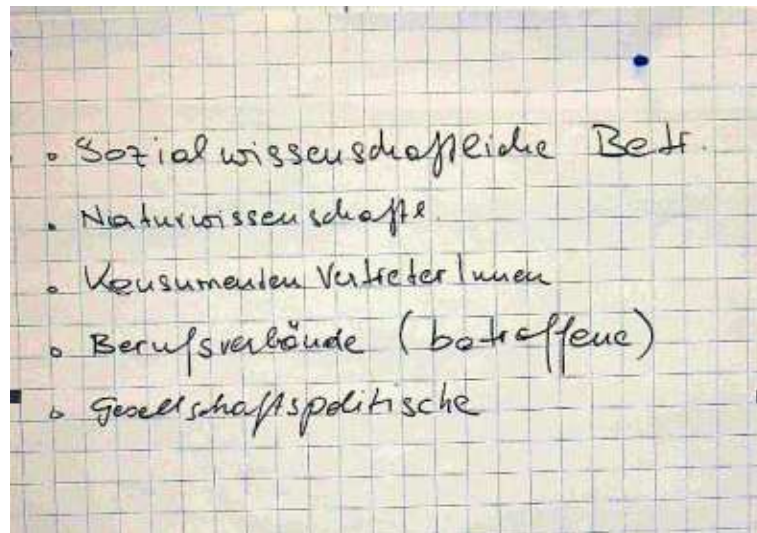 • Sozialwissenschaftliche Betr.
• Naturwissenschaftl.
• Konsumenten VertreterInnen
• Berufsverbände (betroffene)
• Gesellschaftspolitische